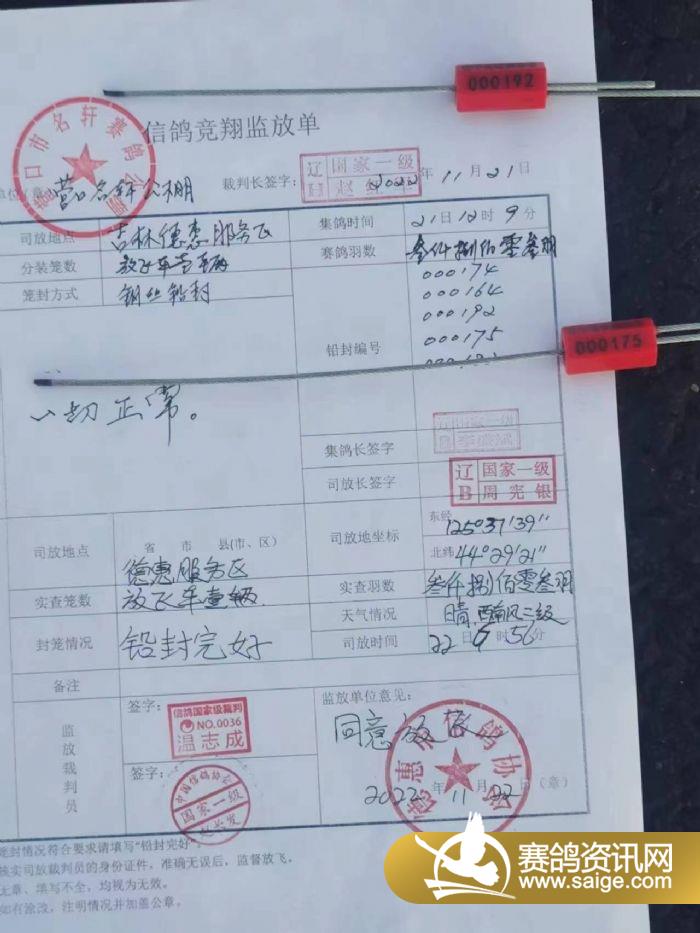 000192
信鸽竞翔监放单
营口市名轩赛鸽公
单位(章) 营口名轩公棚 裁判长签字: 辽 国家一级 2022年11月21日
司放地点 吉林德惠服务区 集鸽时间 21日12时9分
分装笼数 放飞车壹车 赛鸽羽数 叁仟捌佰零叁羽
笼封方式 钢丝铅封 铅封编号 000174
000164
000192
000175
000175
一切正常。
集鸽长签字 国家一级
司放长签字 辽B 国家一级 周宪银
司放地点 省 市 县(市、区) 德惠服务区 司放地坐标 东经 125°37'39"
北纬 44°29'21"
实查笼数 放飞车壹辆 实查羽数 叁仟捌佰零叁羽
天气情况 晴 西南风二级
封笼情况 铅封完好 司放时间 22日 时56分
备注
监放裁判员 签字: 信鸽国家级裁判 NO.0036 温志成
签字: 中国信鸽协会 国家一级
监放单位意见:
同意放飞
德惠市信鸽协会
2022年11月22日(章)
笼封情况符合要求请填写“铅封完好”。
核实司放裁判员的身份证件,准确无误后,监督放飞。
无章、填写不全,均视为无效。
如有涂改,注明情况并加盖公章。
赛鸽资讯网
www.saige.com